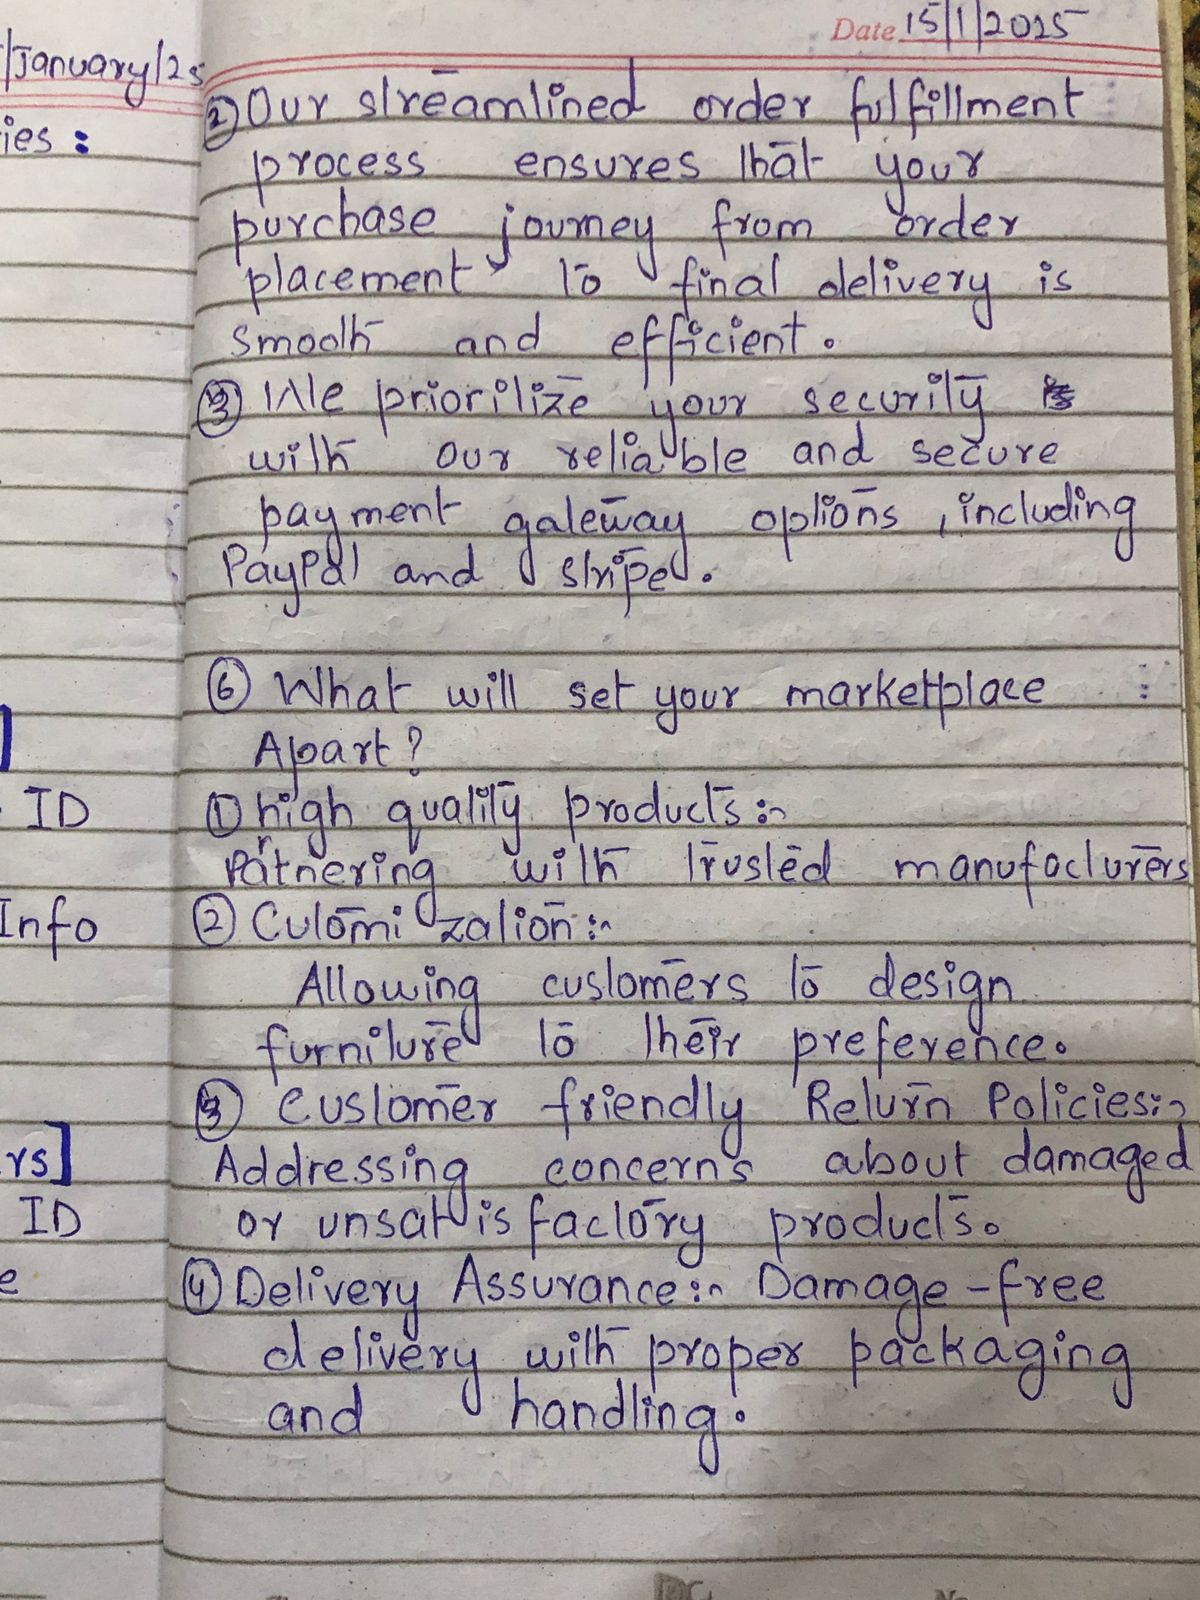 /January/25
ies :
]
ID
Info
rs]
ID
e
Date 15/1/2025
② Our streamlined order fulfillment
process ensures that your
purchase journey from order
placement to final delivery is
smooth and efficient.
③ We prioritize your security
with our reliable and secure
payment gateway options, including
PayPal and stripe.
⑥ What will set your marketplace
Apart?
① high quality products:-
Partnering with trusted manufacturers
② Cutomization:-
Allowing customers to design
furniture to their preference.
③ Customer friendly Return Policies:-
Addressing concerns about damaged
or unsatisfactory products.
④ Delivery Assurance:- Damage-free
delivery with proper packaging
and handling.